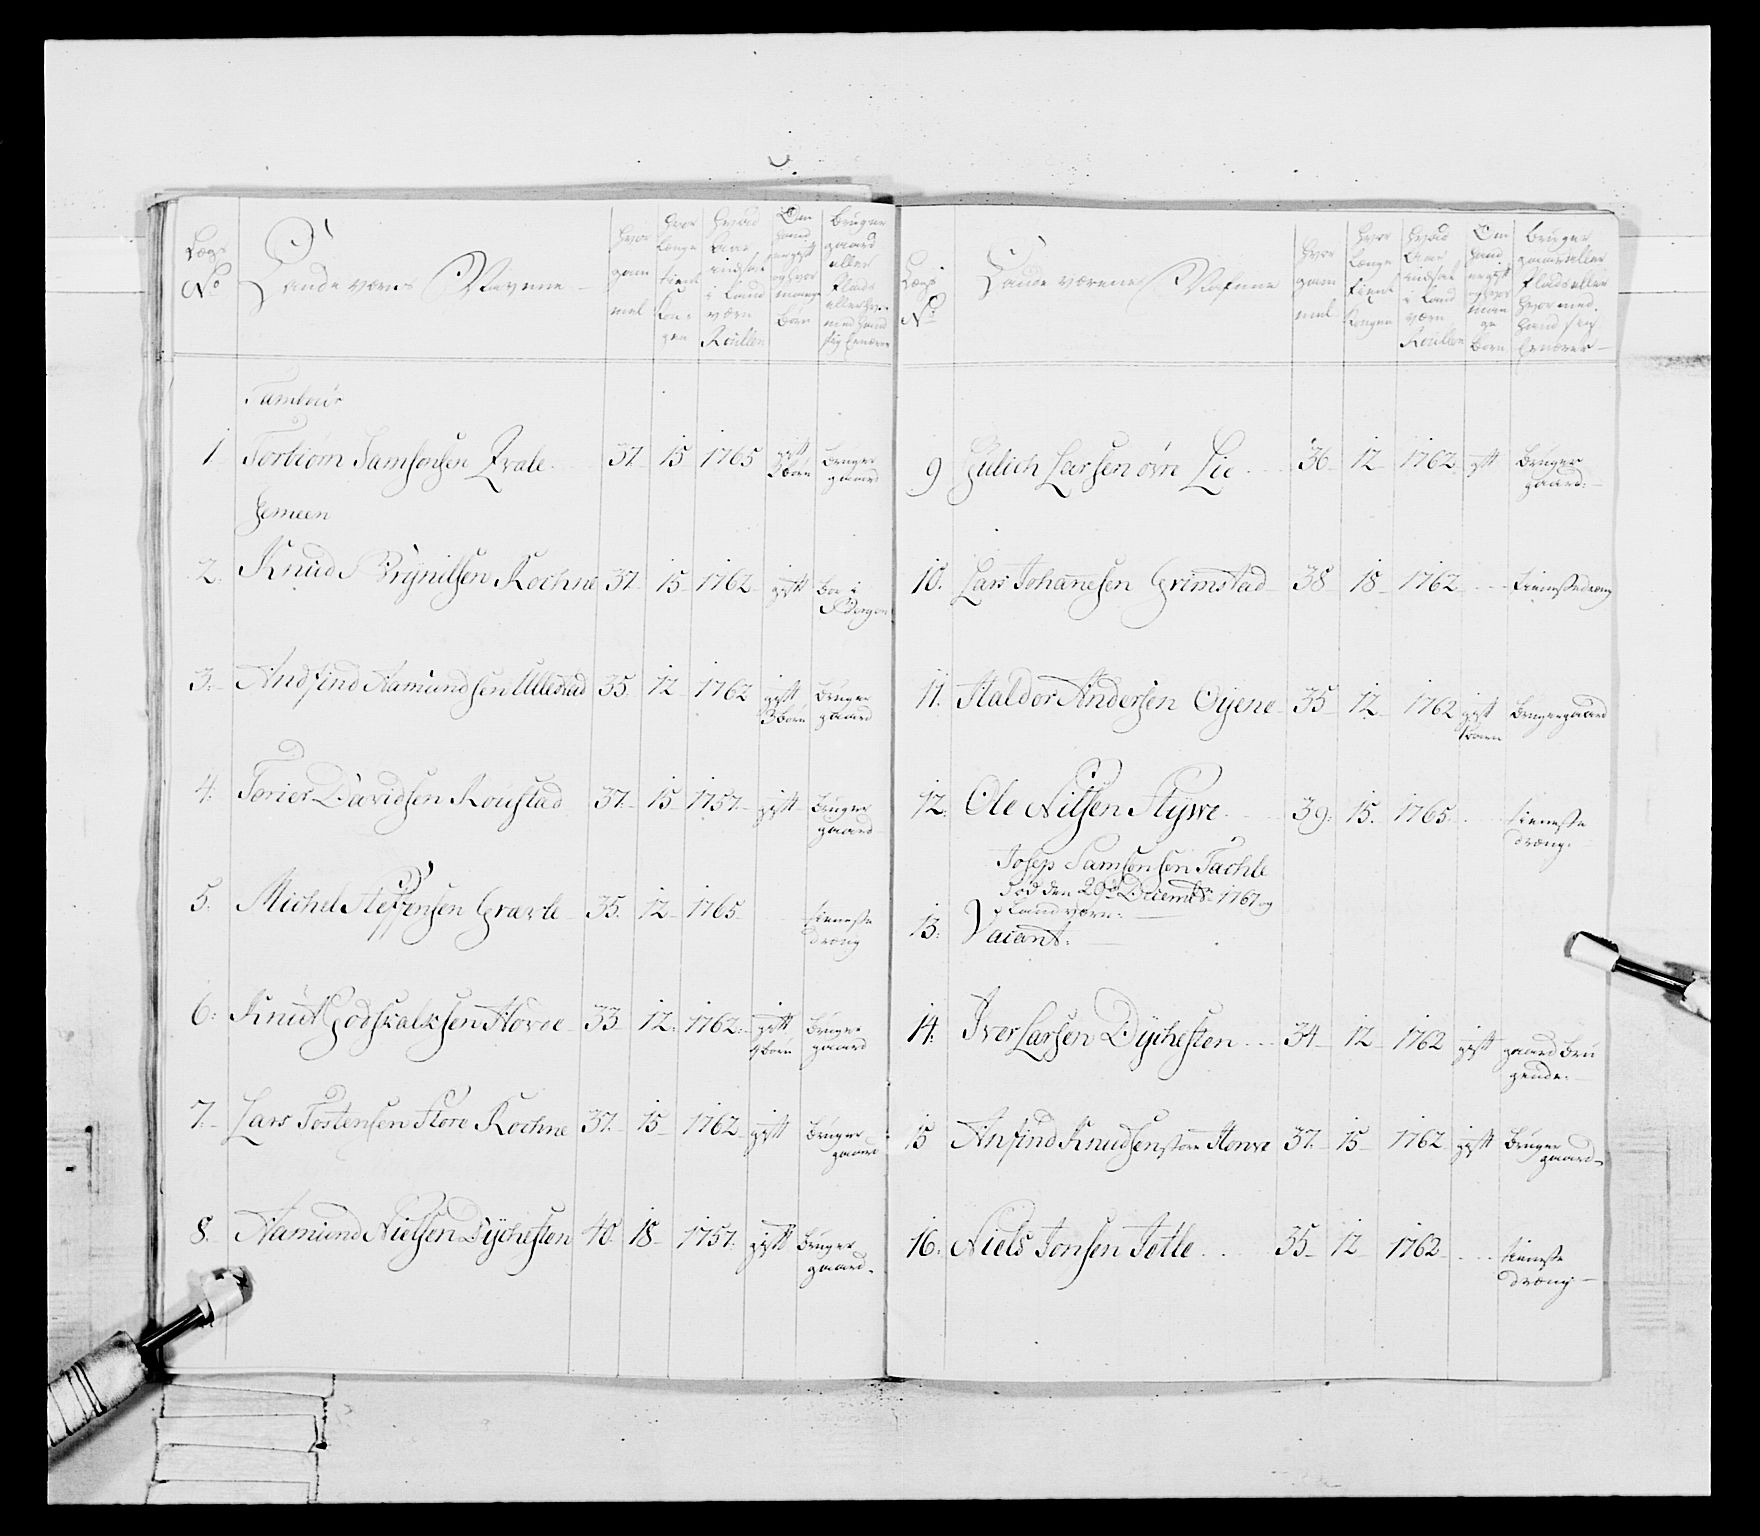 Lægs No
Landeværns Navnene
Hvor gam mel
Hvor længe tient Kon- gen
Hvad Aar indsat i Land værn Roullen
Om hand er gift og hvor mange Børn
bruger gaard eller Plads eller hvor med hand sig Ernærer
Tambour
1 Torbiørn Samsonsen Qvale 37 15 1765 gift 3 børn bruger gaard
Gemeen
2. Knud Brynilsen Kochne 37 15 1762 gift boe i Bergen
3. Andfind Aamundsen Ullestad 35 12 1762 gift 3 børn bruger gaard
4. Torier Davidsen Roustad 37 15 1757 gift bruger gaard
5. Michel Steffensen Grævle 35 12 1765 tieneste dreng
6. Knut Godskalksen Hovoe 33 12 1762 gift børn bruger gaard
7. Lars Tostensen Store Kochne 37 15 1762 gift bruger gaard
8. Aamund Nielsen Dychesten 40 18 1757 gift bruger gaard
Lægs No
Landeværnes Nafnne
Hvor gam mel
Hvor længe tient Kongen
Hvad Aar indsat i Land værn Roullen
Om hand er gift og hvor man ge Børn
bruger gaard eller Plads eller hvor med hand sig Ernærer
9 Gulich Larsen øvre Lie 36 12 1762 gift bruger gaard
10. Lars Johanesen Grimstad 38 18 1762 tienestedreng
11. Haldor Andersen Oÿene 35 12 1762 gift 1 barn bruger gaard
12. Ole Nilsen Styve 39 15 1765 tieneste dreng
Josep Samsonsen Tachle
død den 29de Decembr 1767 og
i Landværn:
13. Vacant:
14. Iver Larsen Dÿchesten 34 12 1762 gift gaard bru gende
15 Anfind Knudsen store Honve 37 15 1762 gift bruger gaard
16. Niels Jonsen Totle 35 12 1762 tieneste dreng